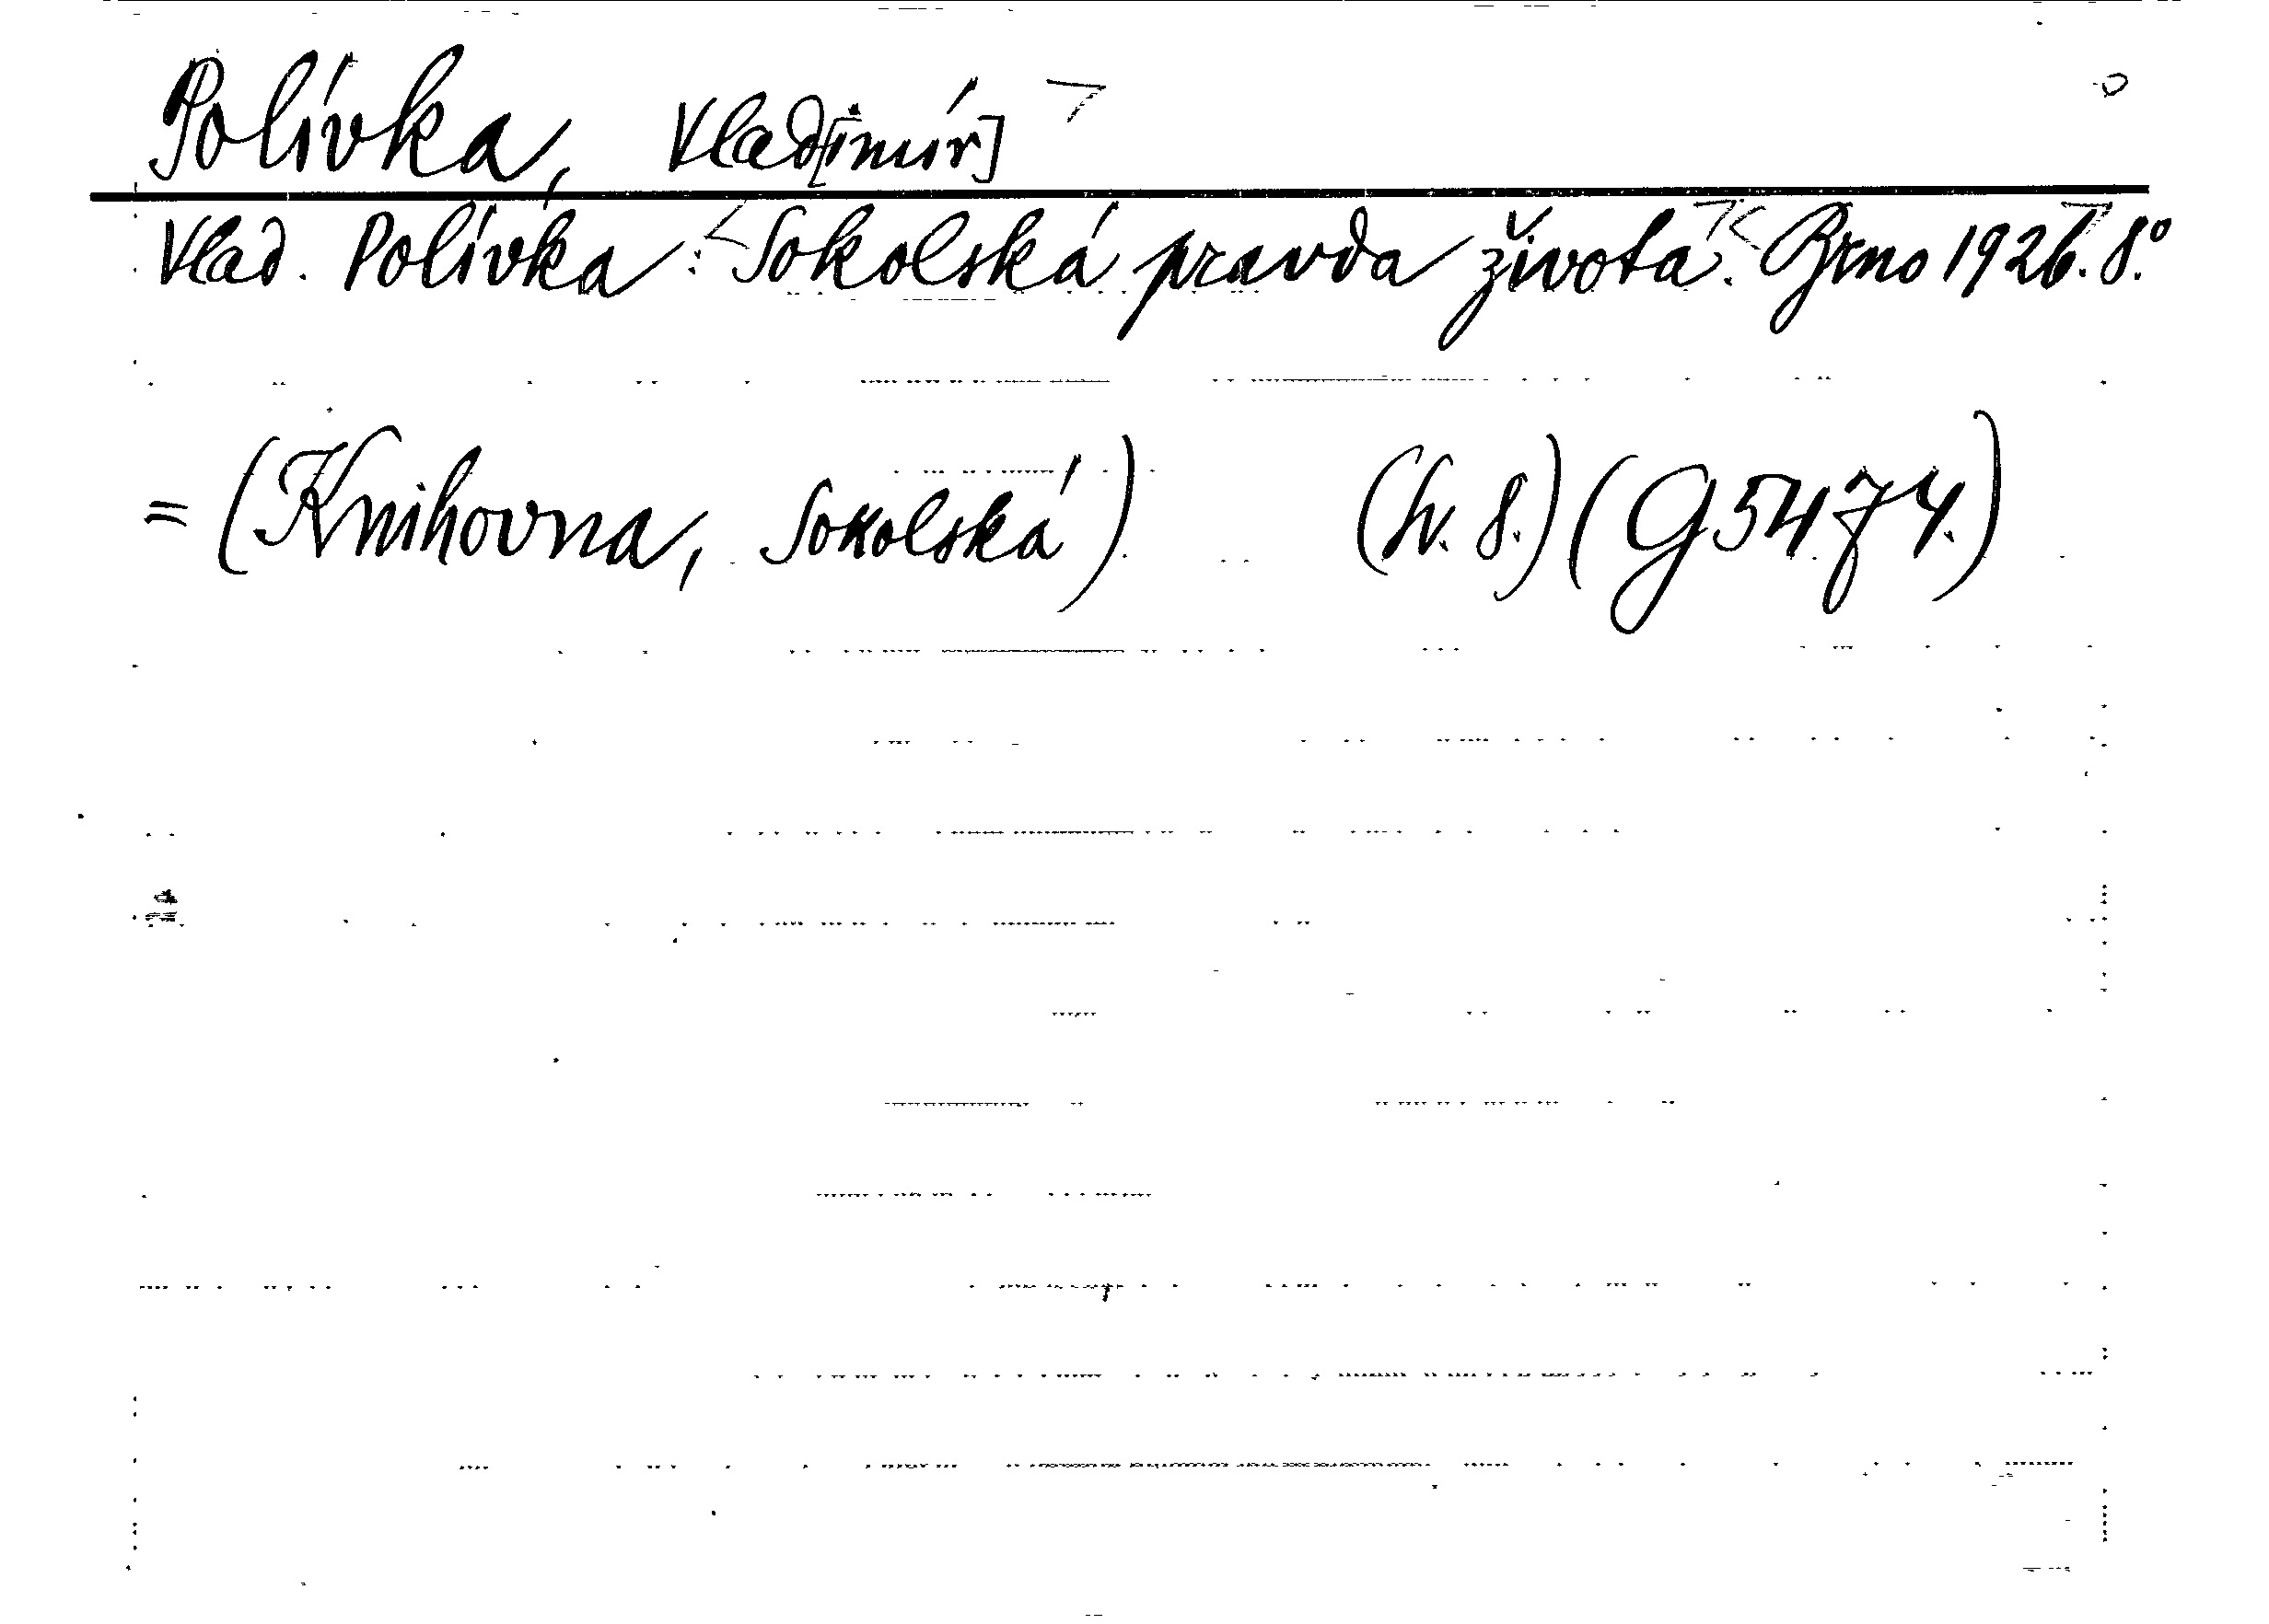 Polívka, Vlad[imír]
Vlad. Polívka: Sokolská pravda života. Brno 1926. 8.°
= (Knihovna, Sokolská) (Sv. 8.) (G 5474.)